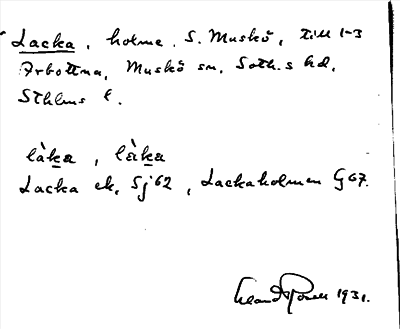 Lacka, holme, S. Muskö, till 1-3
Arbottna, Muskö sn, Soth.s hd,
Sthlms l.
làka, làka
Lacka ek, Sj 62, Lackaholmen G 67.
1931.